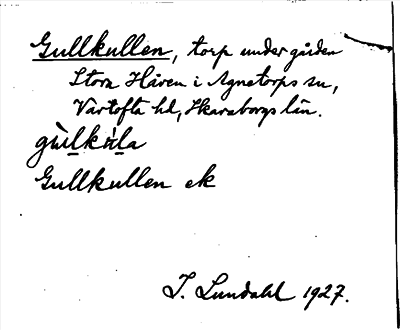 Gullkullen, torp under gården
Stora Håven i Agnetorps sn,
Vartofta hd, Skaraborgs län.
gùlkúla
Gullkullen ek
I. Lundahl 1927.